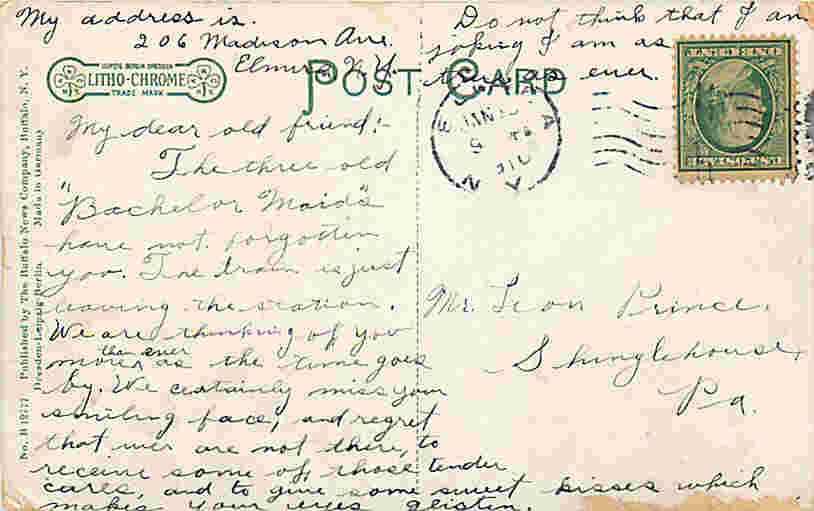 My address is.
206 Madison Ave.
Elmira N.Y.
Do not think that I am
joking I am as
true as ever.
LEIPZIG BERLIN DRESDEN
LITHO-CHROME
TRADE MARK
POST CARD
My dear old friend:-
The three old
"Bachelor Maids"
have not forgotten
you. The train is just
leaving the station.
We are thinking of you
more than ever as the time goes
by. We certainly miss your
smiling face, and regret
that wer are not there, to
receive some of those tender
cares, and to give some sweet kisses which
makes your eyes glisten.
Mr. Leon Prince,
Shinglehouse,
Pa.
No. B 12777 Published by The Buffalo News Company, Buffalo, N. Y.
Dresden-Leipzig-Berlin Made in Germany
JAN
5